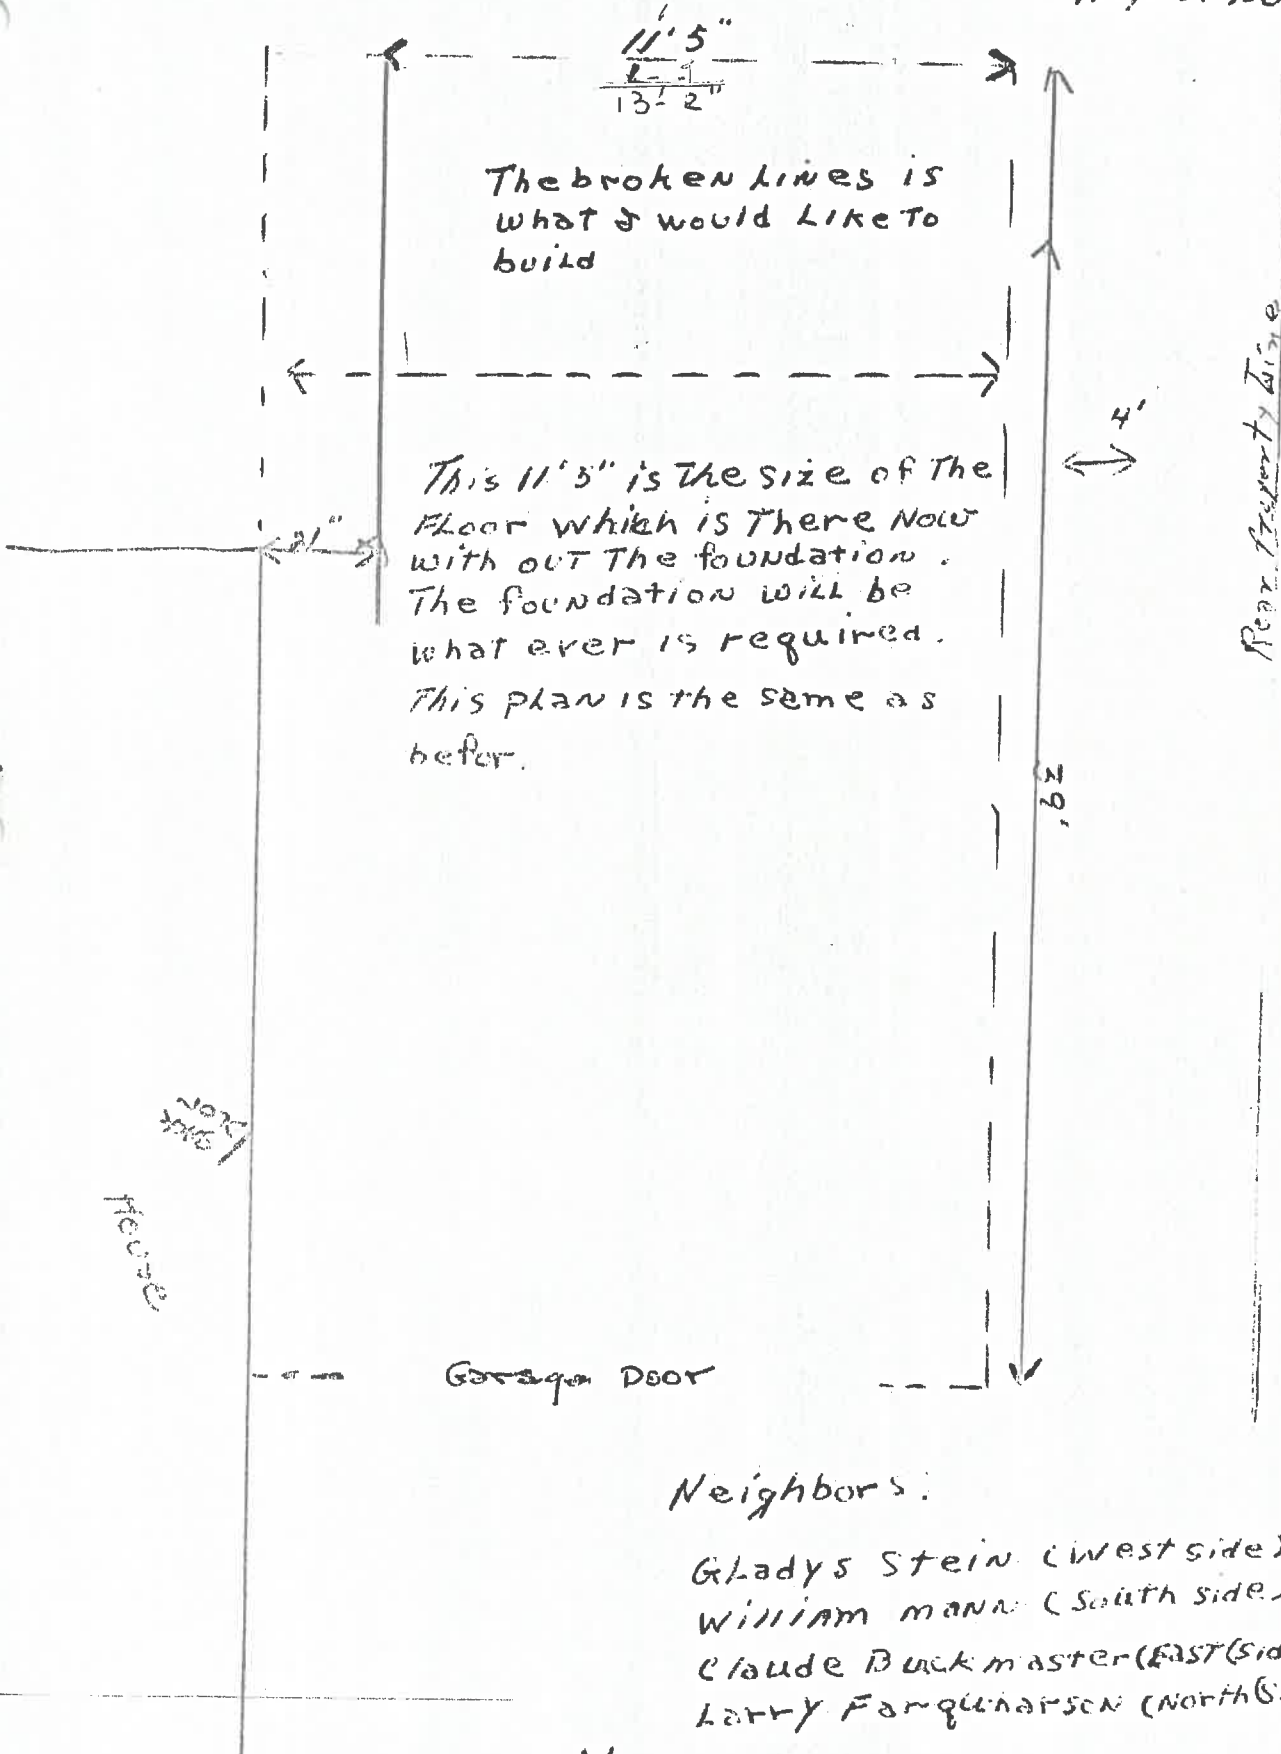 11' 5"
1 - 9
13' 2"
The broken Lines is
what I would Like To
build
4'
Rear Property Line
This 11'5" is The size of The
FLoor which is There Now
with out The foundation.
The foundation will be
what ever is required.
This plan is the same as
befor.
21"
29'
House
Garage Door
Neighbors:
GLadys Stein (west side)
William mann (South side)
Claude Buckmaster (East (sid
Larry Farquharson (North (s